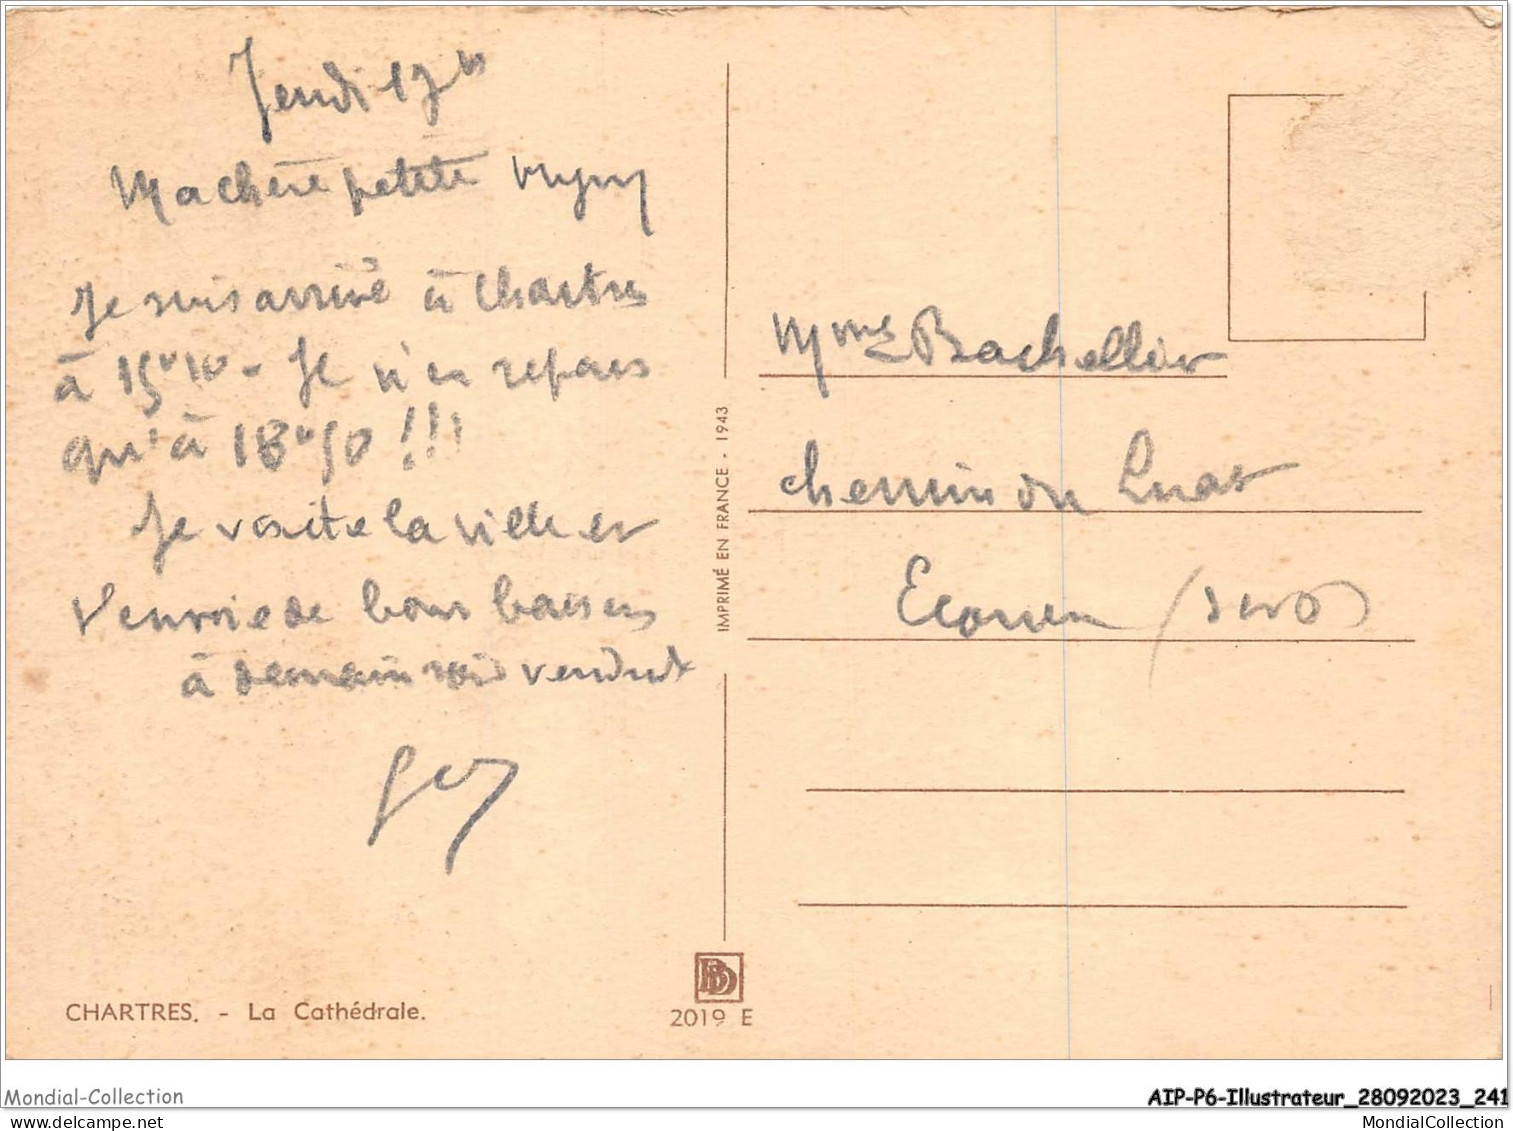 Jeudi 17h
Ma chère petite
Je suis arrivé à Chartres
à 15h10 - Je n'en repars
qu'à 18h50 !!!
Je visite la ville et
t'envoie de bons baisers
à demain soir vendredi
Mme Bachellier
chemin du Luat
Ecouen (S et O)
IMPRIMÉ EN FRANCE - 1943
CHARTRES. - La Cathédrale.
BD
2019 E
Mondial-Collection
AIP-P6-Illustrateur_28092023_241
MondialCollection